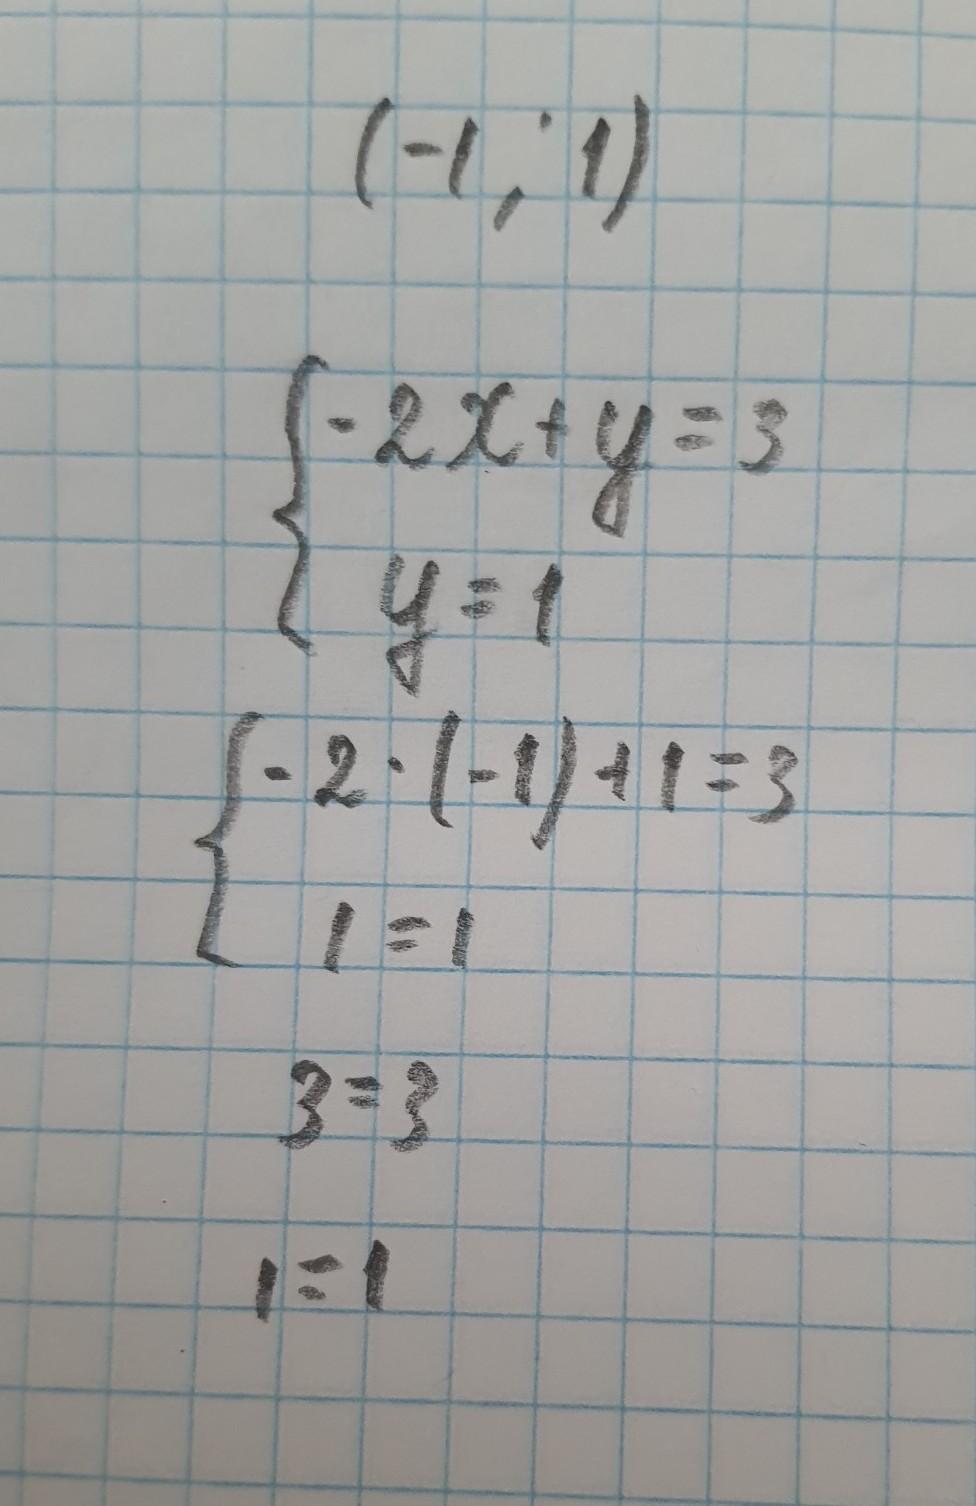 (-1; 1)
{-2x+y=3
y=1
{-2·(-1)+1=3
1=1
3=3
1=1